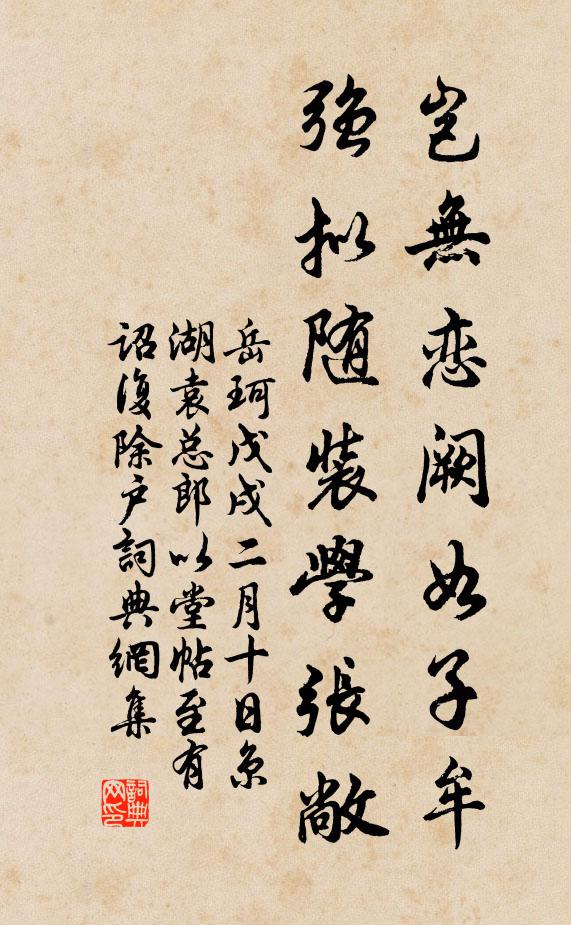 岂無恋阙如子牟
强拟随装學張敞
岳珂戊戌二月十日京
湖袁总郎以堂帖至有
诏復除户詞典網集
詞典网印